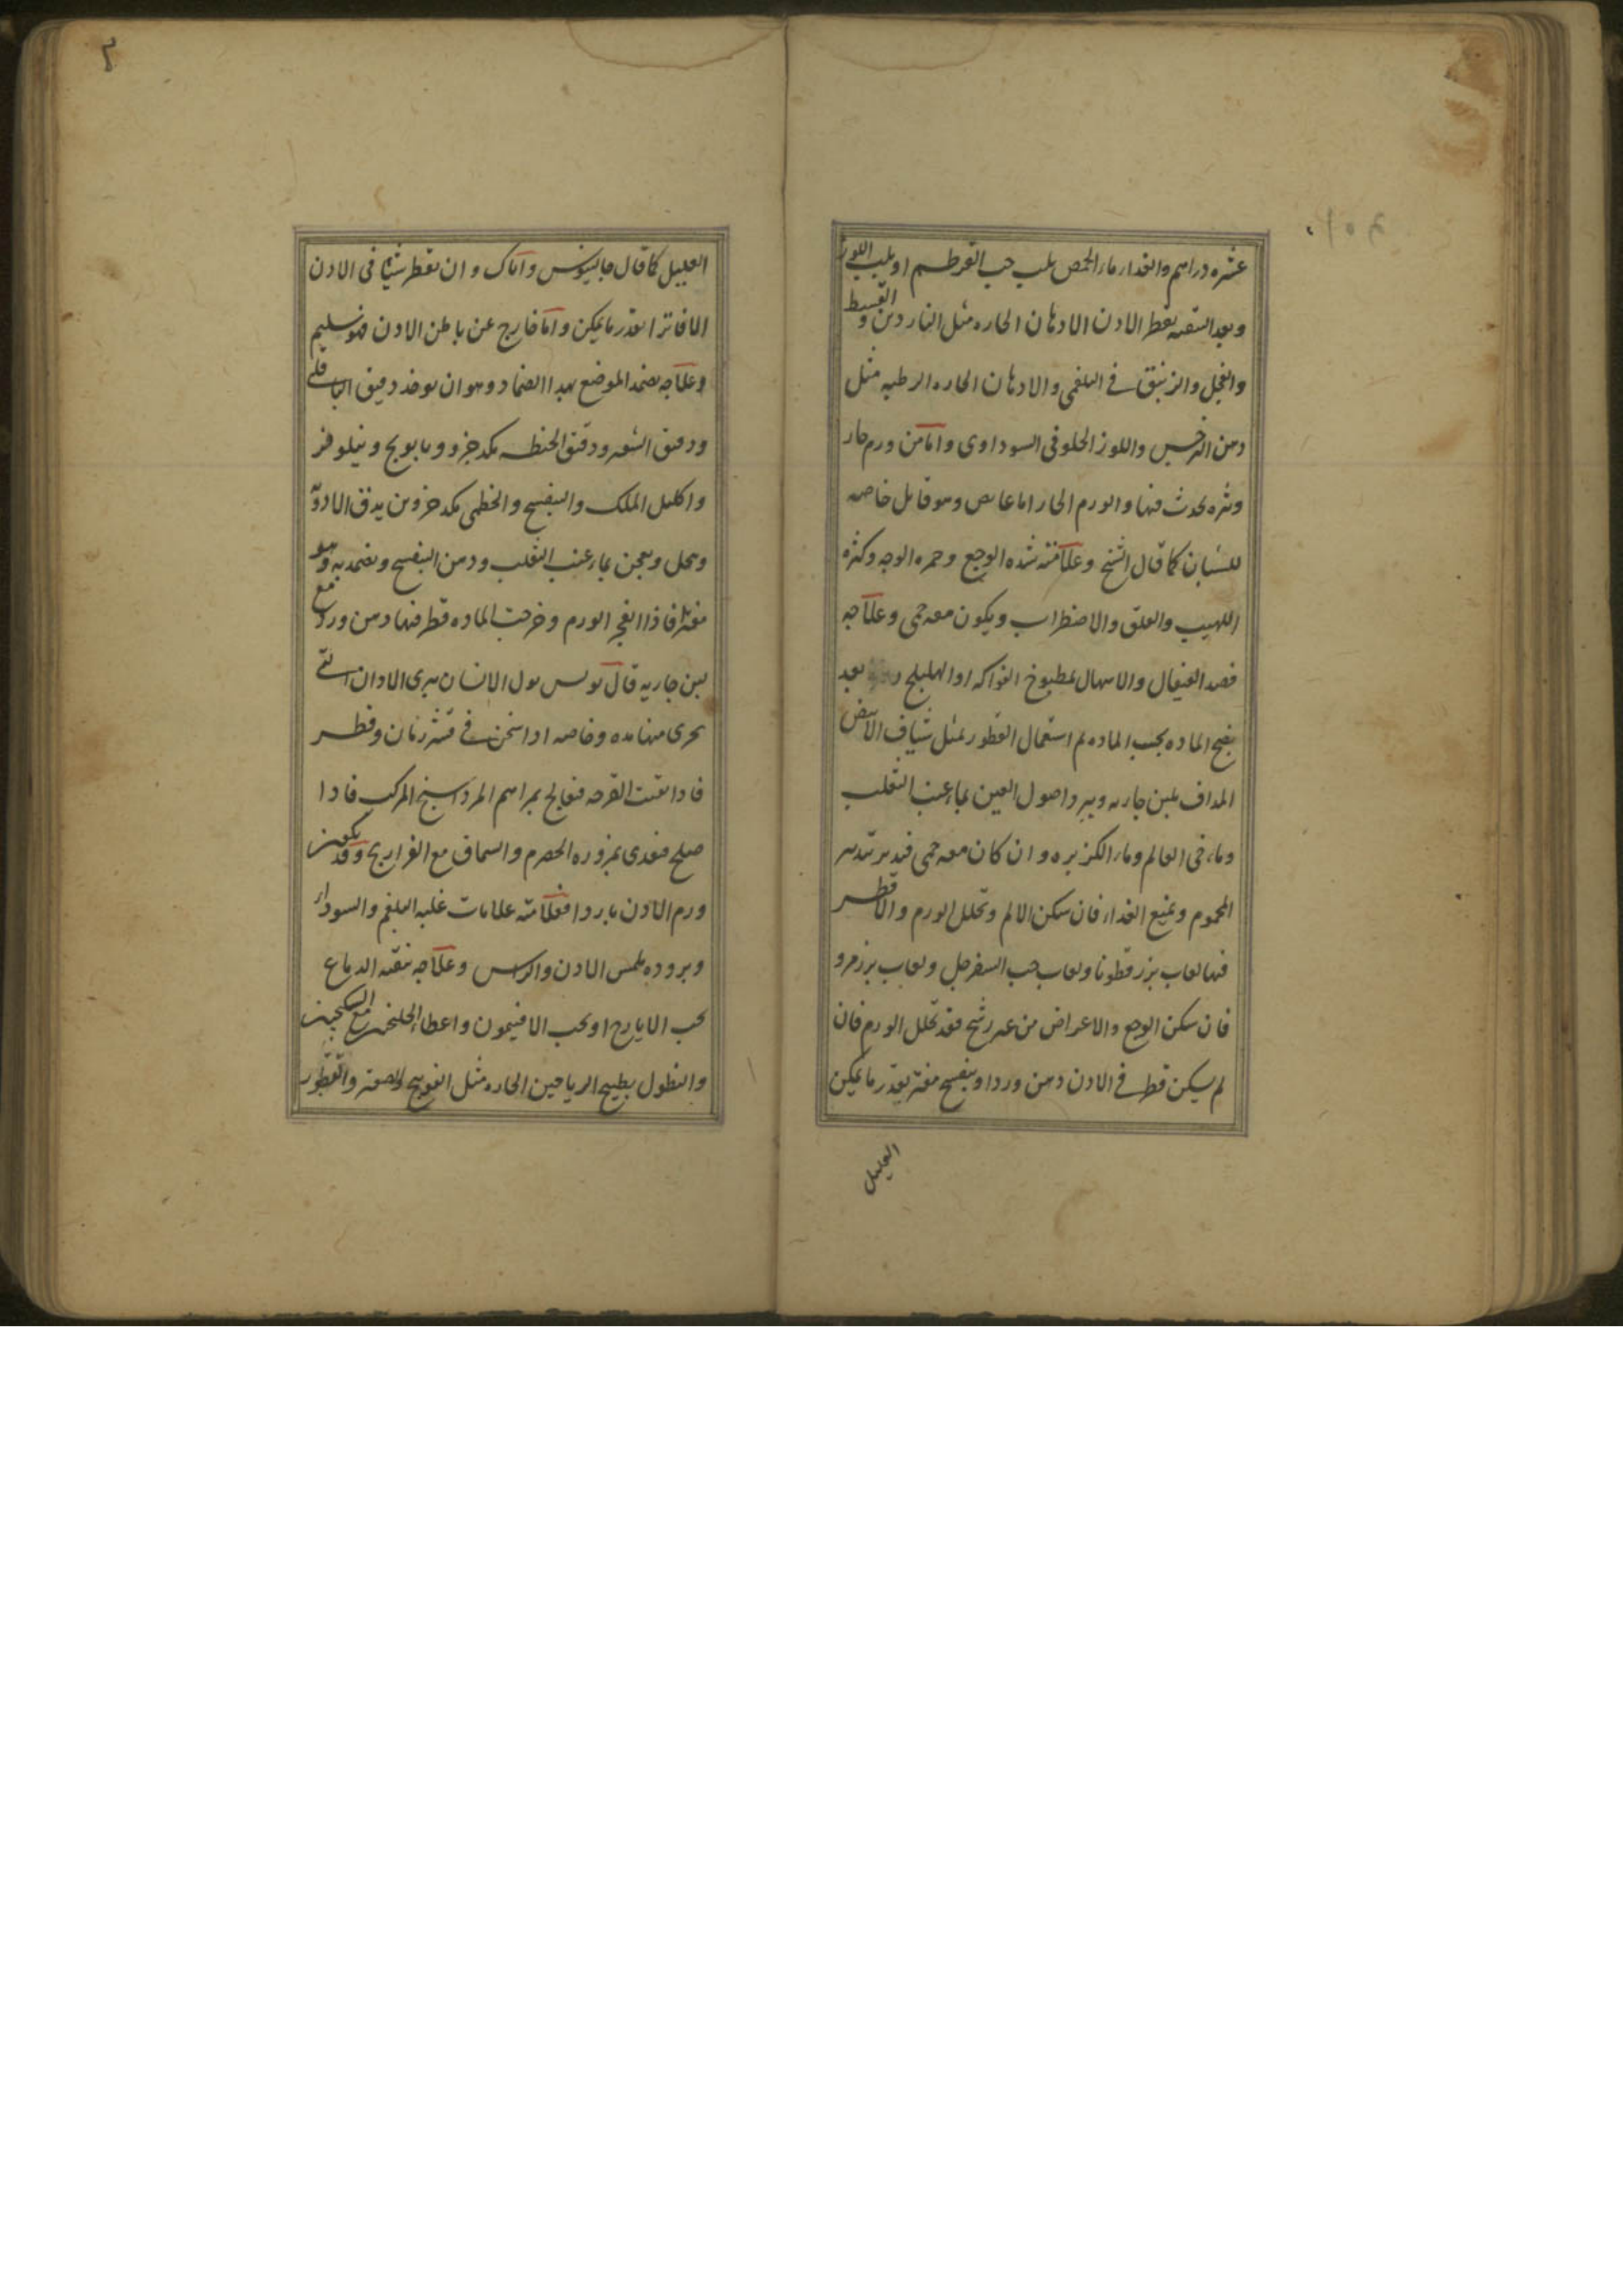 عشره دراهم والغذا ماء الحمص بلب حب القرطم او بلب اللوز
وبعد التنقيه يقطر الاذن الادهان الحاره مثل الناردين والقسط
والفجل والزنبق فى البلغمى والادهان الحاره الرطبه مثل
دهن النرجس واللوز الحلو فى السوداوى واما من ورم حار
وبثره يحدث فيها والورم الحار اما غايص وهو قاتل خاصه
للشبان كما قال الشيخ وعلامته شده الوجع وحمره الوجه وكثره
اللهيب والقلق والاضطراب ويكون معه حمى وعلاجه
فصد القيفال والاسهال بمطبوخ الفواكه او الهليلج بعد
نضج الماده بحسب الماده ثم استعمال القطور بمثل شياف الابيض
المداف بلبن جاريه ويبرد اصول العين بماء عنب الثعلب
وماء حى العالم وماء الكزبره وان كان معه حمى فيدبر تدبير
المحموم ويمنع الغذاء فان سكن الالم وتحلل الورم والا قطر
فيها لعاب بزر قطونا ولعاب حب السفرجل ولعاب بزر مرو
فان سكن الوجع والاعراض من غير رشح فقد تحلل الورم فان
لم يسكن قطر فى الاذن دهن ورد او بنفسج مفتر بقدر ما يمكن
العليل
العليل كما قال جالينوس واياك وان يقطر شيئا فى الاذن
الا فاترا بقدر ما يمكن واما خارج عن باطن الاذن فهو سليم
وعلاجه يضمد الموضع بهذا الضماد وهو ان يوخذ دقيق الباقلى
ودقيق الشعير ودقيق الحنطه مكد جزو وبابونج ونيلوفر
واكليل الملك والبنفسج والخطمى مكد جزوين يدق الادويه
وينخل ويعجن بماء عنب الثعلب ودهن البنفسج ويضمد به وهو
مفتر فاذا انفجر الورم وخرجت الماده قطر فيها دهن ورد مع
لبن جاريه قال بولس بول الانسان يبرى الاذان التى
يجرى منها مده وخاصه اذا سخن فى قشر رمان وقطر
فاذا نقيت القرحه فيعالج بمراهم المرداسنج المركب فاذا
صلح فيغذى بمزوره الحصرم والسماق مع الفراريج وقد يكون
ورم الاذن باردا فعلامته علامات غلبه البلغم والسوداء
وبروده ملمس الاذن والراس وعلاجه تنقيه الدماغ
بحب الايارج او بحب الافتيمون واعطاء الجلنجبين مع السكنجبين
والنطول بطبيخ الرياحين الحاره مثل الفوتنج والصعتر والقطور